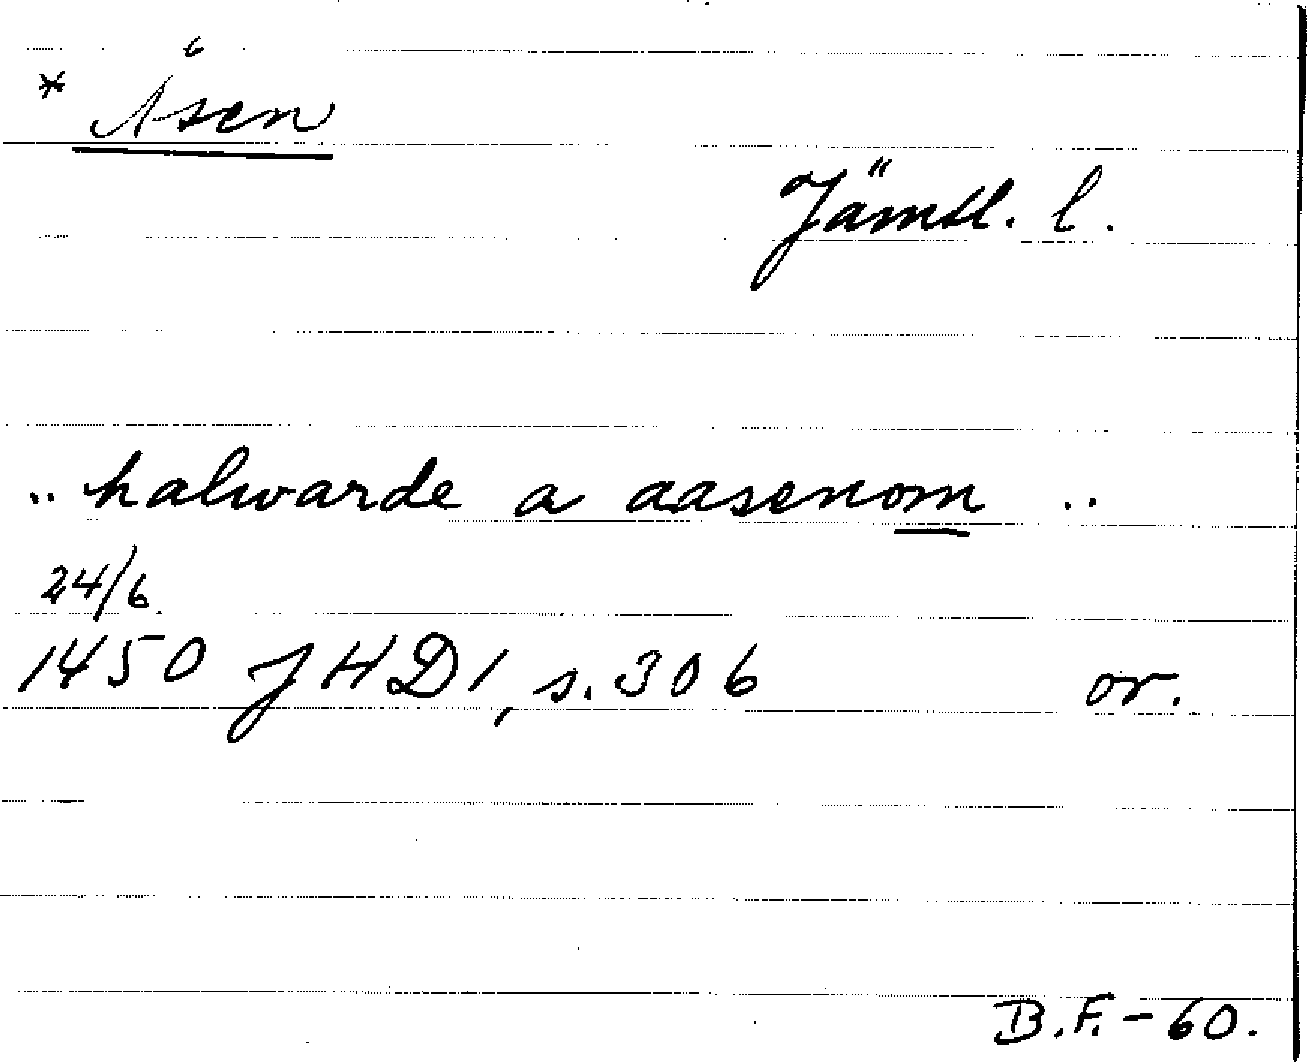 * Åsen
Jämtl. l.
.. halwarde a aasenom ..
24/6
1450 JHD1, s. 306 or.
B.F. - 60.